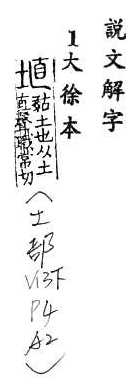 說文解字
1大徐本
埴 黏土也从土
直聲常職切
(土部 V13下 P4 A2)